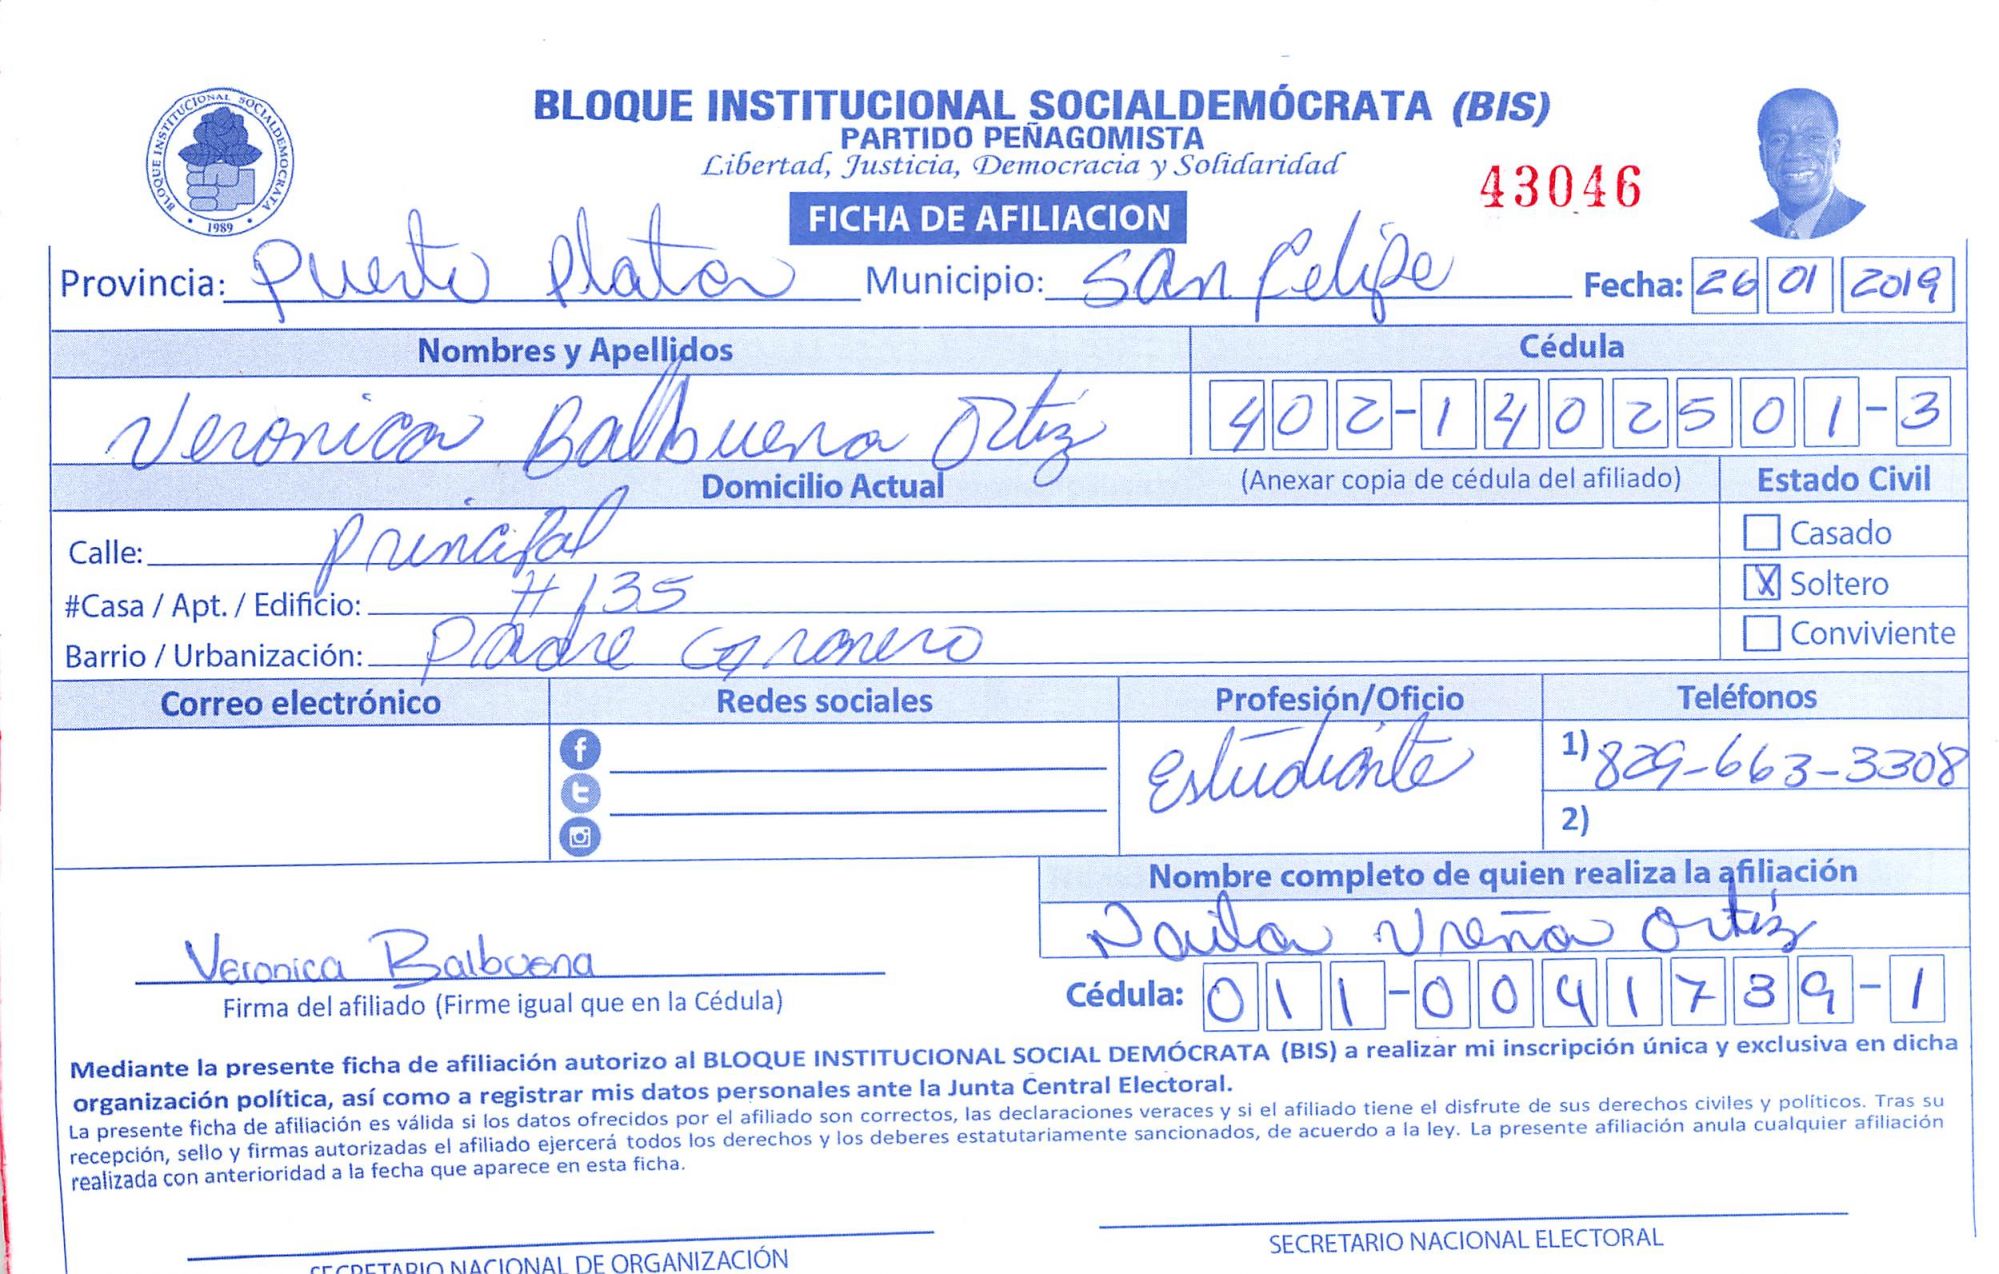 BLOQUE INSTITUCIONAL SOCIALDEMÓCRATA (BIS)
PARTIDO PEÑAGOMISTA
Libertad, Justicia, Democracia y Solidaridad
BLOQUE INSTITUCIONAL SOCIALDEMOCRATA
1989
43046
FICHA DE AFILIACION
Provincia: Puerto Plata Municipio: San Felipe Fecha: 26 01 2019
Nombres y Apellidos Cédula
Veronica Balbuena Ortiz 402-1402501-3
Domicilio Actual (Anexar copia de cédula del afiliado) Estado Civil
Calle: Principal Casado
#Casa / Apt. / Edificio: #135 X Soltero
Barrio / Urbanización: Padre Conviviente
Correo electrónico Redes sociales Profesión/Oficio Teléfonos
Estudiante 1) 829-663-3308
2)
Nombre completo de quien realiza la afiliación
Ureña Ortiz
Veronica Balbuena
Firma del afiliado (Firme igual que en la Cédula) Cédula: 011-0041739-1
Mediante la presente ficha de afiliación autorizo al BLOQUE INSTITUCIONAL SOCIAL DEMÓCRATA (BIS) a realizar mi inscripción única y exclusiva en dicha
organización política, así como a registrar mis datos personales ante la Junta Central Electoral.
La presente ficha de afiliación es válida si los datos ofrecidos por el afiliado son correctos, las declaraciones veraces y si el afiliado tiene el disfrute de sus derechos civiles y políticos. Tras su
recepción, sello y firmas autorizadas el afiliado ejercerá todos los derechos y los deberes estatutariamente sancionados, de acuerdo a la ley. La presente afiliación anula cualquier afiliación
realizada con anterioridad a la fecha que aparece en esta ficha.
SECRETARIO NACIONAL DE ORGANIZACIÓN SECRETARIO NACIONAL ELECTORAL